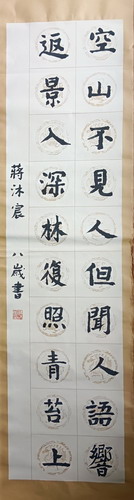 空山不見人但聞人語響
返景入深林復照青苔上
蔣沐宸 八歲書